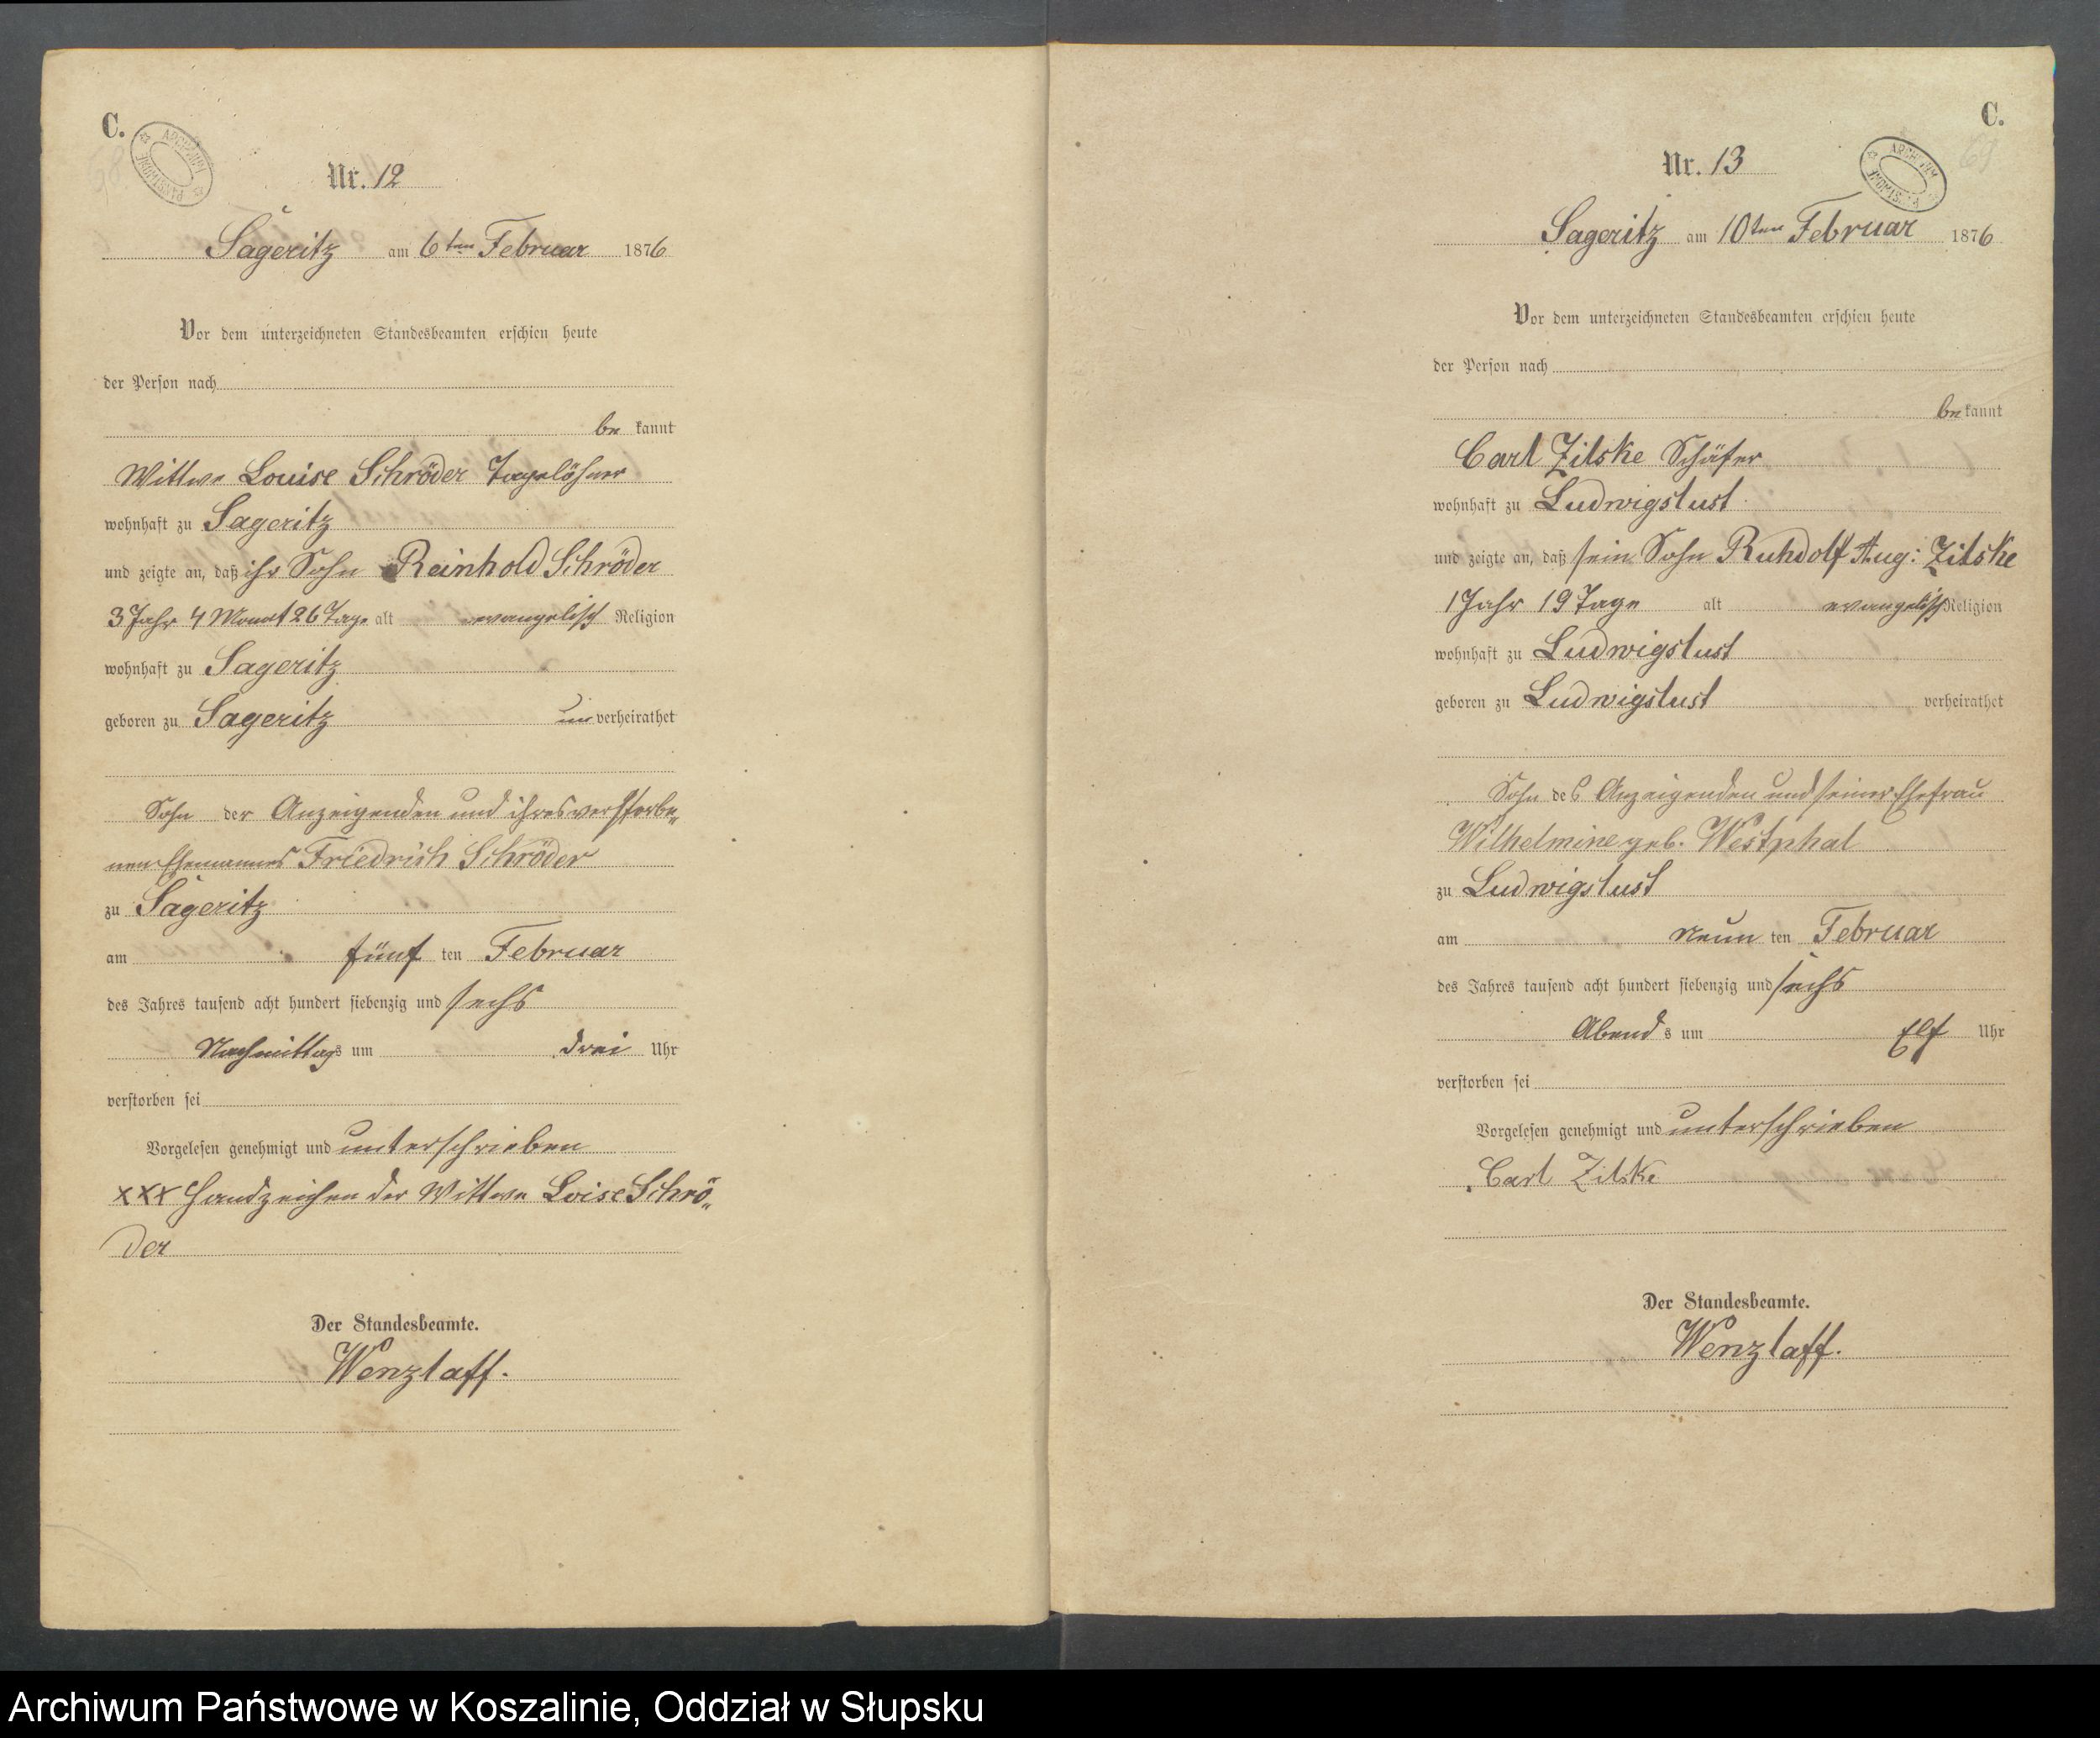 C.
Nr. 12
Sageritz am 6ten Februar 1876
Vor dem unterzeichneten Standesbeamten erschien heute
der Person nach
be kannt
Wittwe Louise Schröder Tagelöhner
wohnhaft zu Sageritz
und zeigte an, daß ihr Sohn Reinhold Schröder
3 Jahr 4 Monat 26 Tage alt evangelisch Religion
wohnhaft zu Sageritz
geboren zu Sageritz un verheirathet
Sohn der Anzeigenden und ihres verstorbe„
nen Ehemannes Friedrich Schröder
zu Sageritz
am fünf ten Februar
des Jahres tausend acht hundert siebenzig und sechs
Nachmittags um drei Uhr
verstorben sei
Vorgelesen genehmigt und unterschrieben
xxx Handzeichen der Wittwe Loise Schrö„
der
Der Standesbeamte.
Wenzlaff.
C.
Nr. 13
Sageritz am 10ten Februar 1876
Vor dem unterzeichneten Standesbeamten erschien heute
der Person nach
be kannt
Carl Zitske Schäfer
wohnhaft zu Ludwigslust
und zeigte an, daß sein Sohn Ruhdolf Aug: Zitske
1 Jahr 19 Tage alt evangelisch Religion
wohnhaft zu Ludwigslust
geboren zu Ludwigslust verheirathet
Sohn des Anzeigenden und seiner Ehefrau
Wilhelmine geb. Westphal
zu Ludwigslust
am neun ten Februar
des Jahres tausend acht hundert siebenzig und sechs
Abends um Elf Uhr
verstorben sei
Vorgelesen genehmigt und unterschrieben
Carl Zitske
Der Standesbeamte.
Wenzlaff.
Archiwum Państwowe w Koszalinie, Oddział w Słupsku